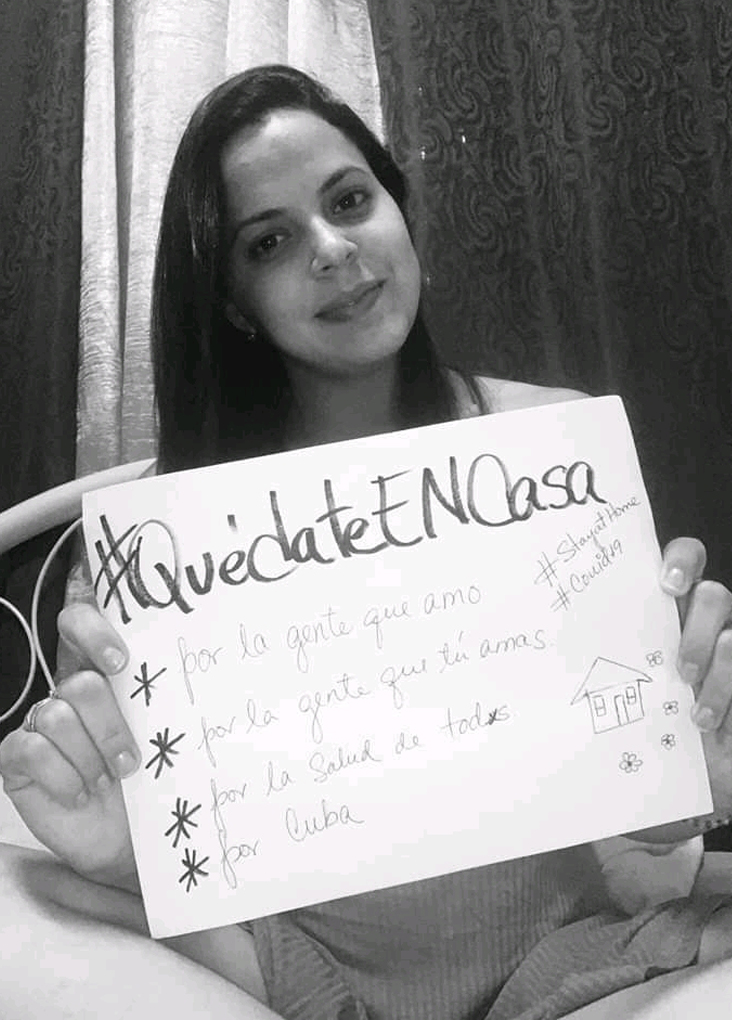 #QuédateENCasa
#StayatHome
#Covid19
* por la gente que amo
* por la gente que tú amas.
* por la Salud de todxs
* por Cuba